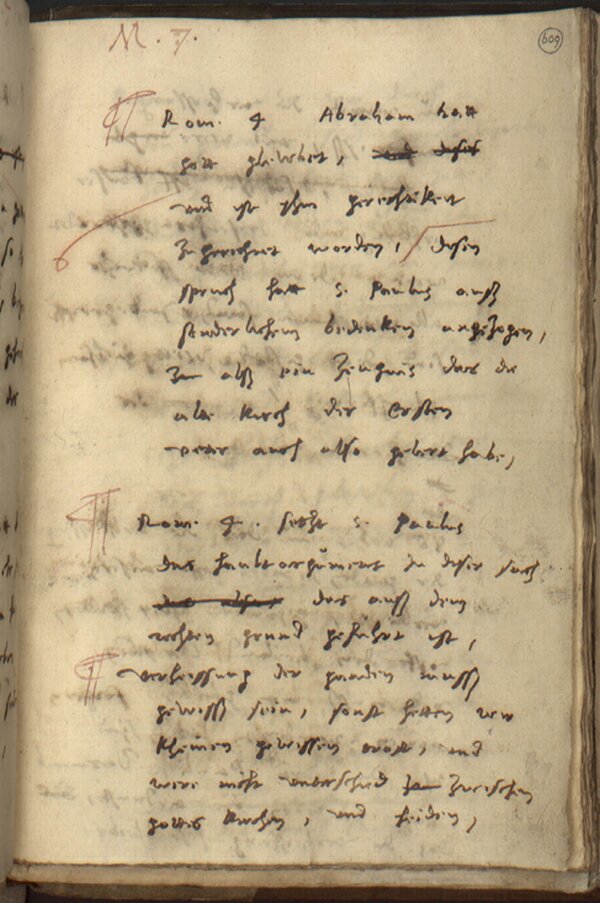 M. 7.
609
Rom. 4 Abraham hatt
gott glewbet, und dises
und ist yhm gerechtikeit
zugerechnet worden, disen
spruch hatt S. Paulus auß
sunderlichem bedenken angezogen,
zu alß ein zeugnis das die
alte kirch der Ersten
veter auch also gelert habe,
Rom. 4. setzt S. Paulus
das haubtargument in diser sach
das auß dem
rechten grund gefuhrt ist,
verheissung der gnaden muß
gewiß sein, sonst hetten wir
kheinen gewissen trost, und
were nicht underschied zwischen
gottes kirchen, und heiden,